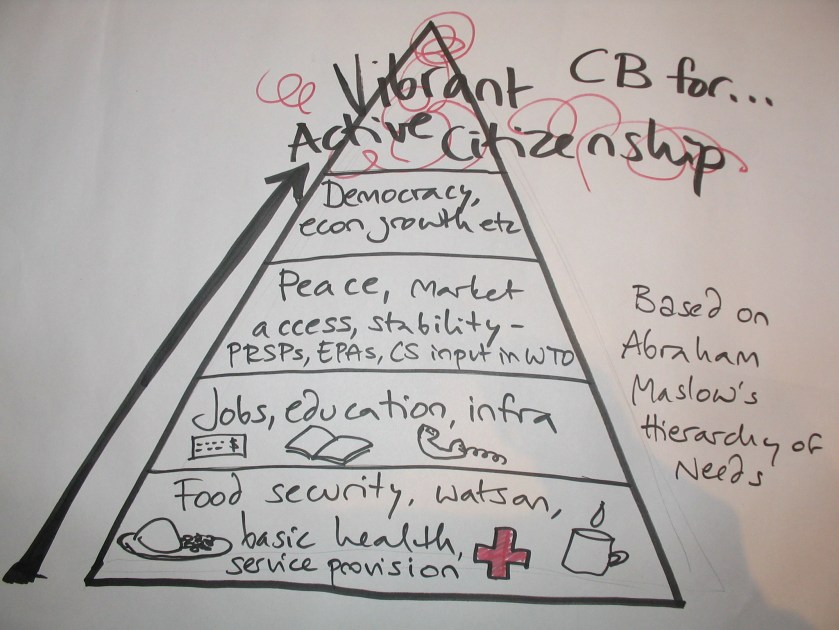 CB for...
Vibrant
Active Citizenship
Democracy,
econ growth etc
Peace, market
access, stability -
PRSPs, EPAs, CS input in WTO
Jobs, education, infra
Food security, watsan,
basic health,
service provision
Based on
Abraham
Maslow's
Hierarchy of
Needs